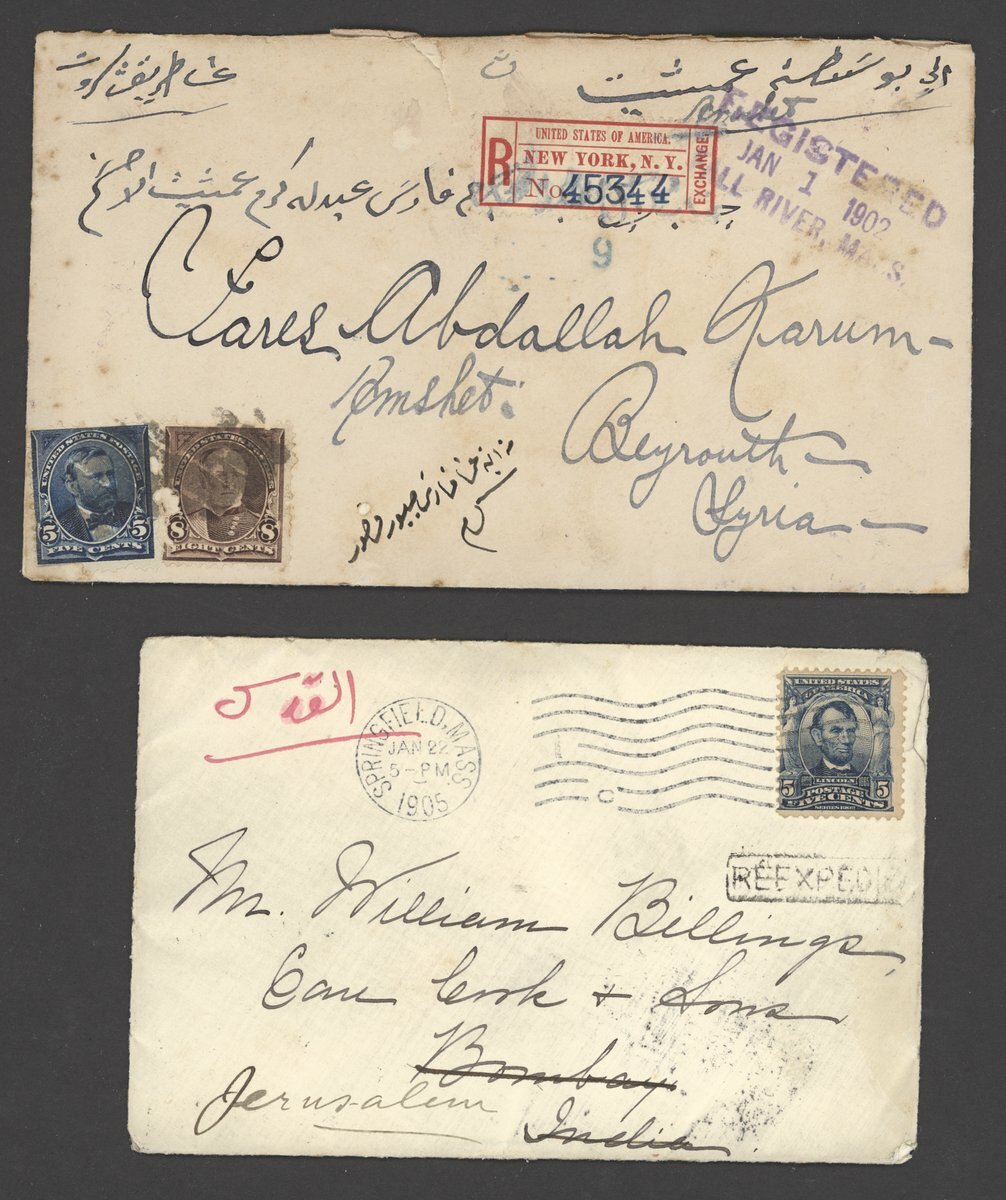 الى بوسطة عمشيت
على طريق بيروت
REGISTERED
JAN 1 1902
FALL RIVER, MASS.
R
UNITED STATES OF AMERICA.
NEW YORK, N. Y.
No. 45344
EXCHANGE
فارس عبدله كرم عمشيت
9
Fares Abdallah Karum
Emshet.
Beyrouth
Syria
UNITED STATES POSTAGE
5 5
FIVE CENTS
UNITED STATES POSTAGE
8 8
EIGHT CENTS
القدس
SPRINGFIELD, MASS.
JAN 22
5-PM
1905
UNITED STATES
OF AMERICA
LINCOLN
5 POSTAGE 5
FIVE CENTS
SERIES 1902
RÉEXPEDIÉ
Mr. William Billings
Care Cook & Sons
Bombay
Jerusalem
India